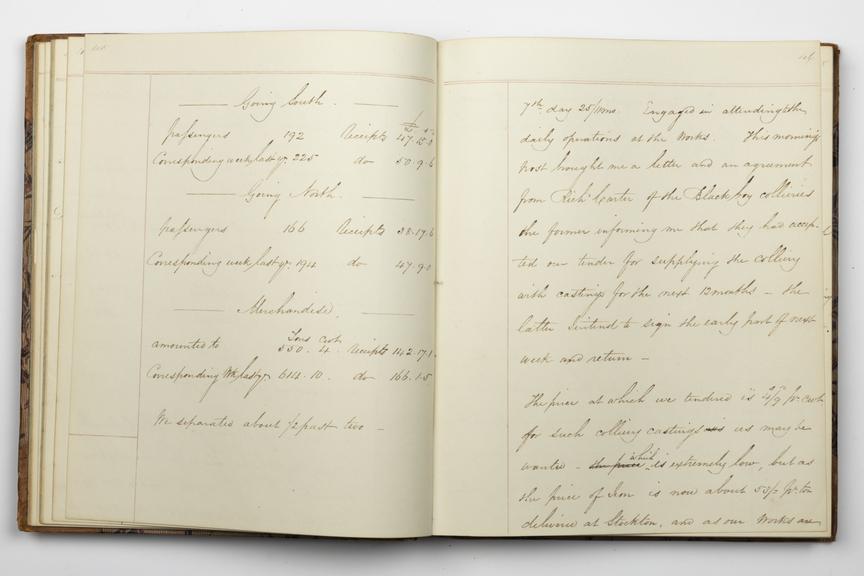 Going South.
£ s d
passengers 192 Receipts 47.15.
Corresponding week last yr. 225 do 50.9.6
Going North.
passengers 166 Receipts 38.17.6
Corresponding week last yr. 194 do 47.9.0
Merchandise.
Tons Cwts
amounted to 550. 4. Receipts 142.17.1
Corresponding Wk last yr 614.10. do 166.1.5
We separated about ½ past two –
7th day 25/11mo. Engaged in attending the
daily operations at the Works. This morning's
Post brought me a letter and an agreement
from Richd Carter of the Black Boy collieries
the former informing me that they had accep-
ted our tender for supplying the colliery
with castings for the next 12 months – the
latter I intend to sign the early part of next
week and return –
The price at which we tendered is 4/9 pr Cwt
for such colliery castings as may be
wanted – the price which is extremely low, but as
the price of Iron is now about 53/- pr ton
delivered at Stockton, and as our Works are